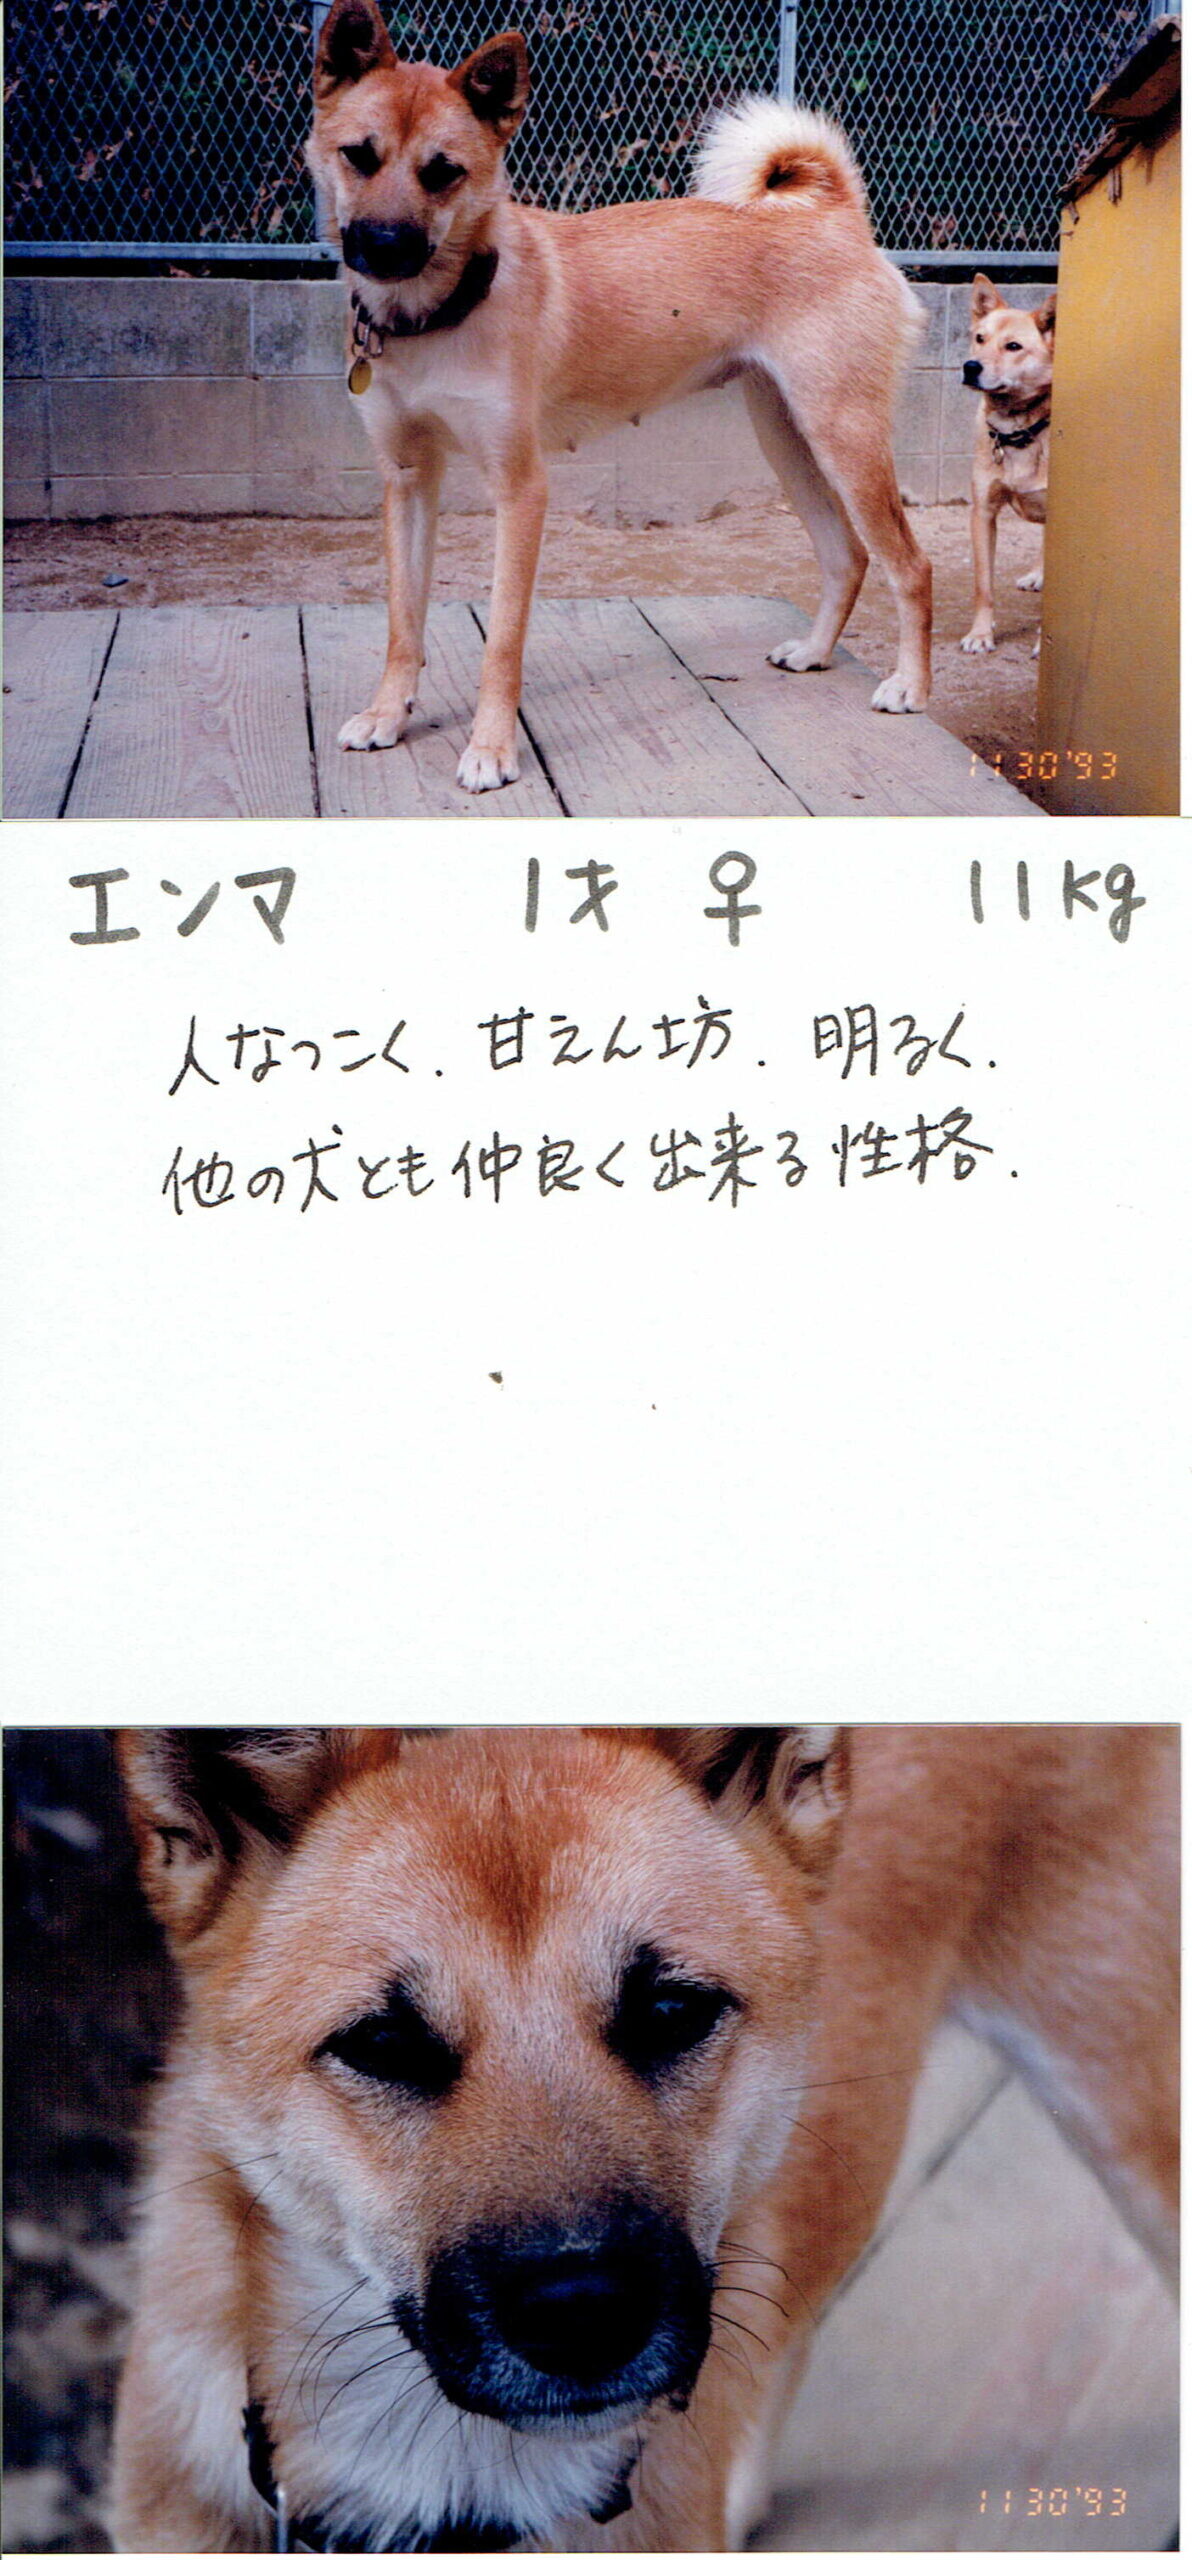 11 30 '93
エンマ 1才 ♀ 11kg
人なつこく. 甘えん坊. 明るく.
他の犬とも仲良く出来る性格.
11 30 '93